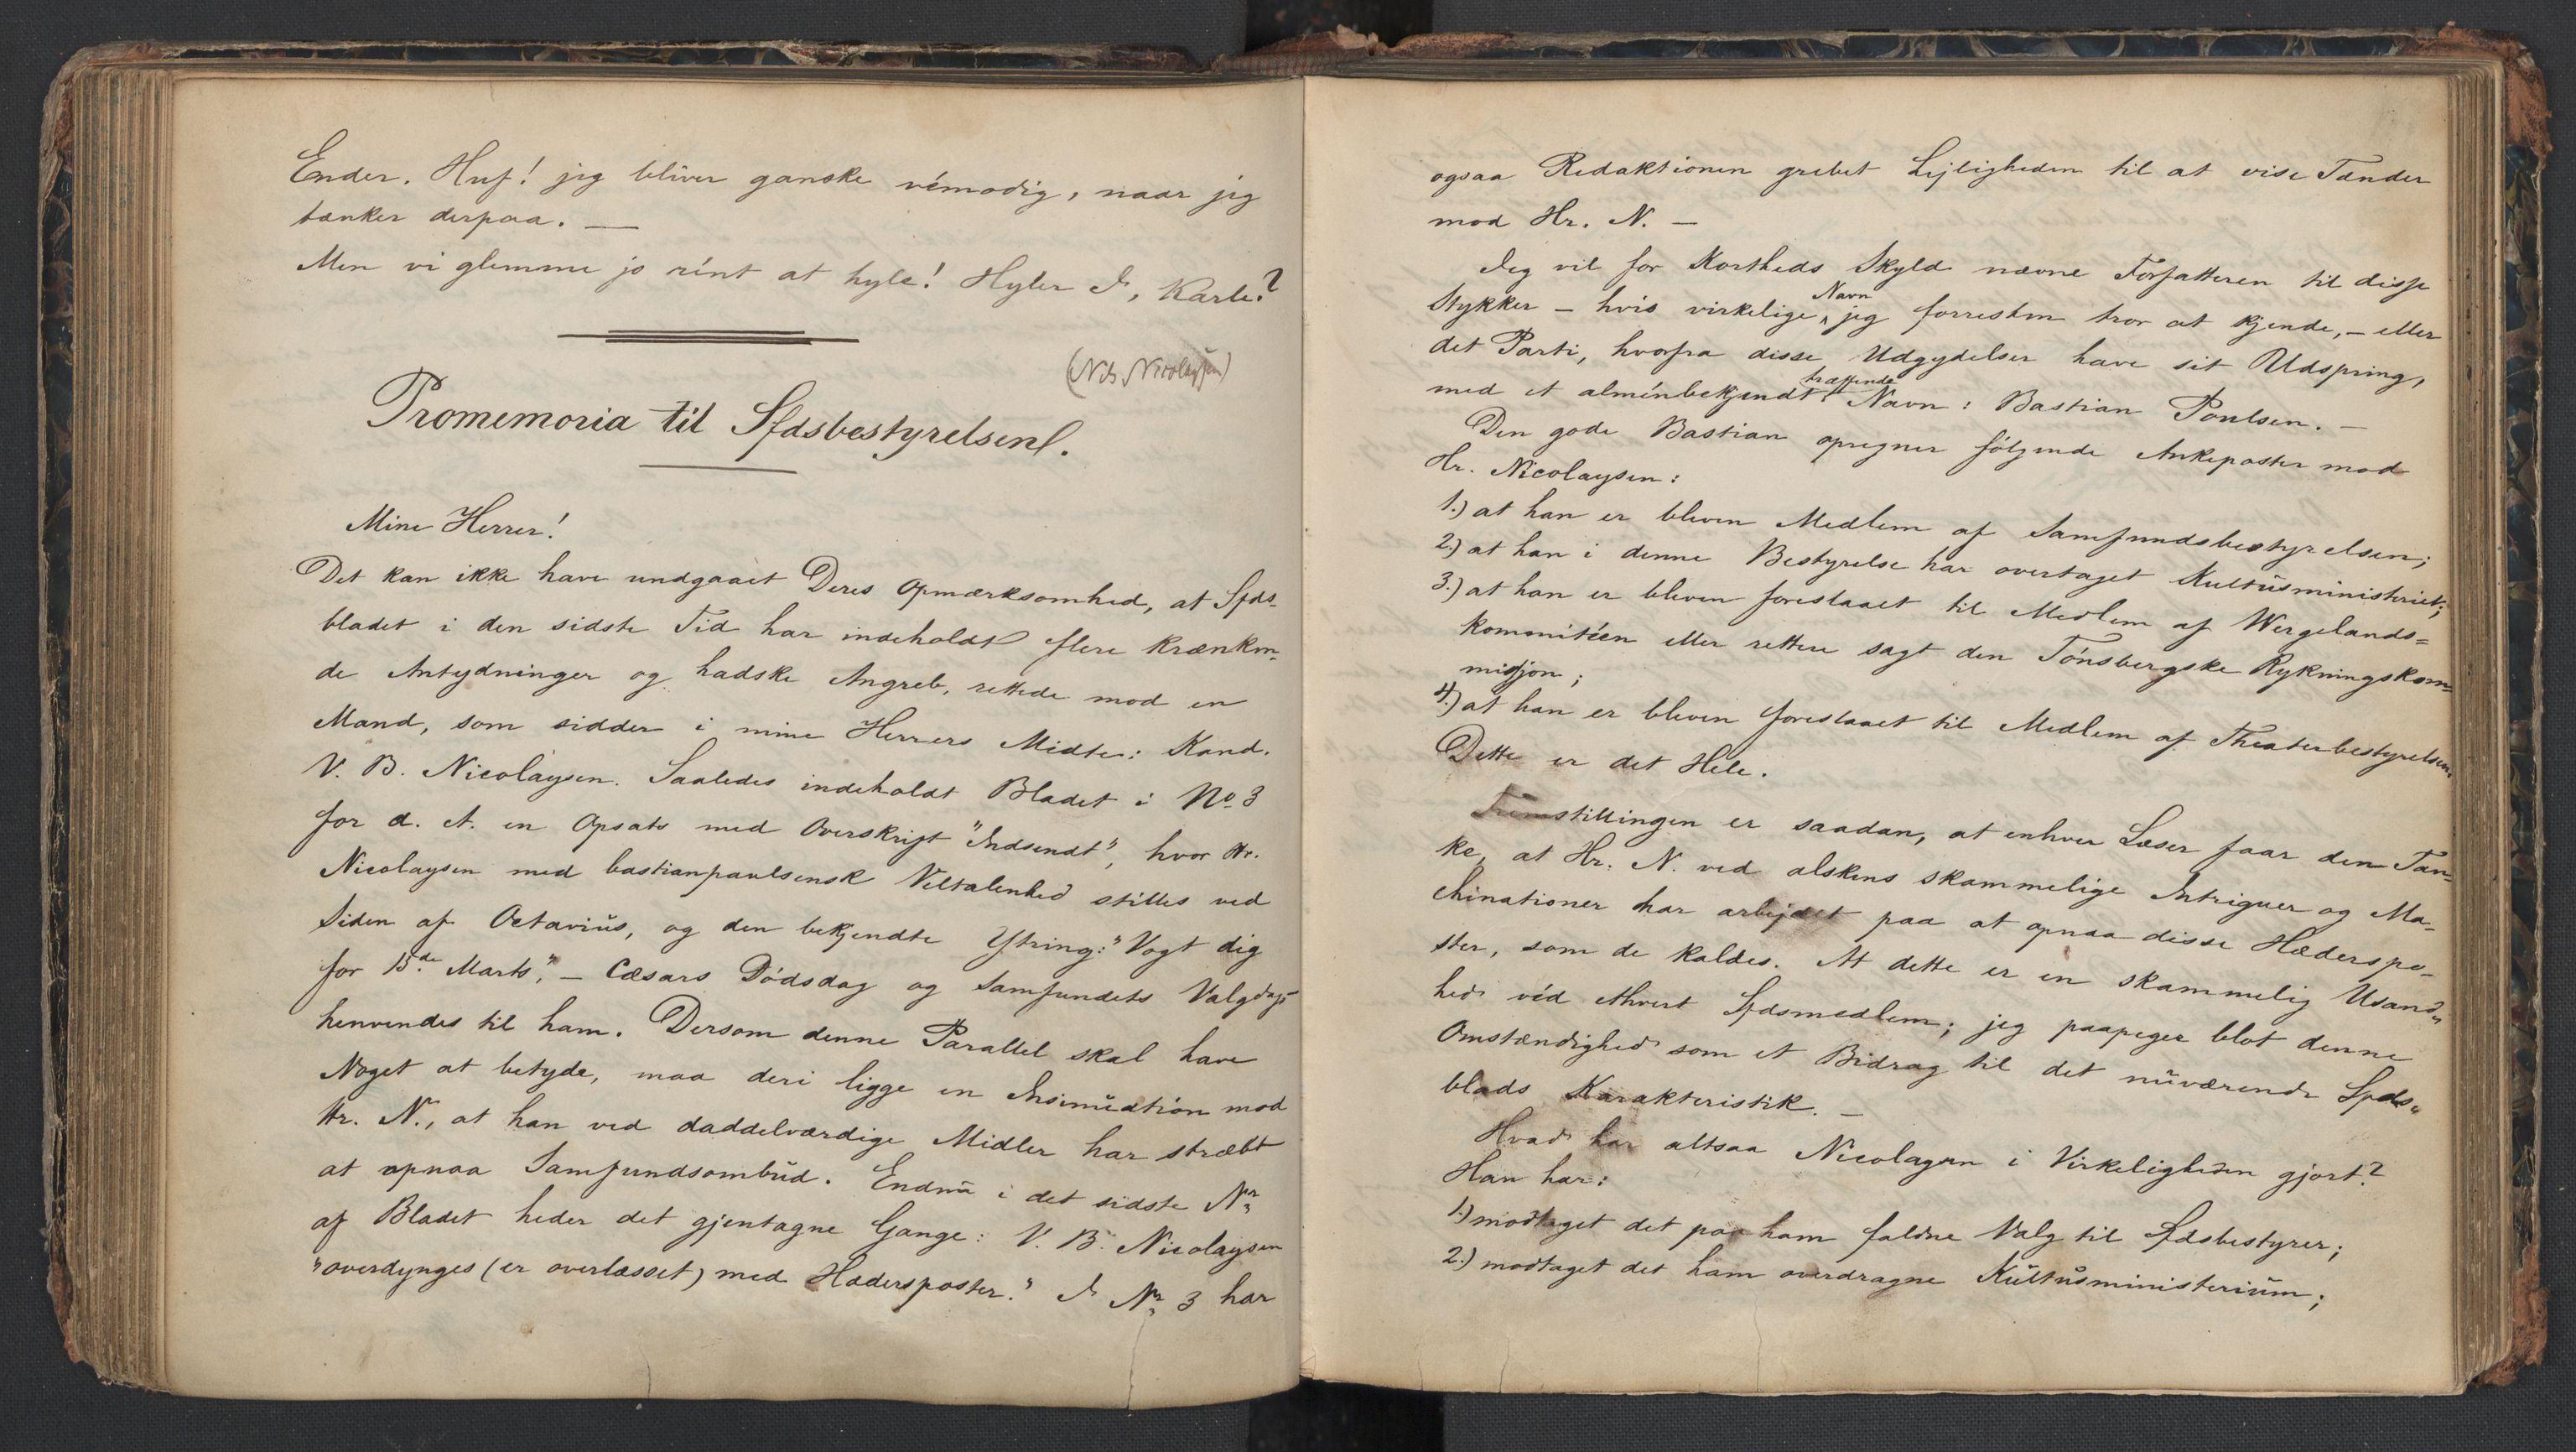 Ender. Huf! jeg bliver ganske vémodig, naar jeg
tænker derpaa. —
Men vi glemme jo rént at hyle! Hyler I, Karle?
(Nils Nicolaysen)
Promemoria til Sfdsbestyrelsen.
Mine Herrer!
Det kan ikke have undgaaet Deres Opmærksomhed, at Sfds-
bladet i den sidste Tid har indeholdt flere krænken-
de Antydninger og hadske Angreb, rettede mod en
Mand, som sidder i mine Herrers Midte: Kand.
V. B. Nicolaysen. Saaledes indeholdt Bladet i No 3
for d. A. en Opsats med Overskrift "Indsendt", hvor Hr.
Nicolaysen med bastianpaulsensk Veltalenhed stilles ved
Siden af Octavius, og den bekjendte Ytring: "Vogt dig
for 15de Marts", – Cæsars Dödsdag og Samfundets Valgdag –
henvendes til ham. Dersom denne Parallel skal have
Noget at betyde, maa deri ligge en Insinuation mod
Hr. N., at han ved daddelværdige Midler har stræbt
at opnaa Samfundsombud. Endnu i det sidste Nr.
af Bladet heder det gjentagne Gange: V. B. Nicolaysen
"overdynges (er overlæsset) med Hædersposter." I Nr. 3 har
ogsaa Redaktionen grebet Lejligheden til at vise Tænder
mod Hr. N. –
Jeg vil for Kortheds Skyld nævne Forfatteren til disse
Navn
Stykker – hvis virkelige jeg forresten tror at kjende, – eller
det Parti, hvorfra disse Udgydelser have sit Udspring,
træffende
med et alménbekjendt Navn: Bastian Poulsen. –
Den gode Bastian opregner fölgende Ankeposter mod
Hr. Nicolaysen:
1.) at han er bleven Medlem af Samfundsbestyrelsen;
2.) at han i denne Bestyrelse har overtaget Kultusministeriet;
3.) at han er bleven foreslaaet til Medlem af Wergelands=
kommitéen eller rettere sagt den Tönsbergske Rykningskom=
missjon;
4.) at han er bleven foreslaaet til Medlem af Theaterbestyrelsen.
Dette er det Hele.
Fremstillingen er saadan, at enhver Læser faar den Tan-
ke, at Hr. N. ved alskens skammelige Intriguer og Ma-
chinationer har arbejdet paa at opnaa disse Hæderspo-
ster, som de kaldes. At dette er en skammelig Usand-
hed véd ethvert Sfdsmedlem; jeg paapeger blot denne
Omstændighed som et Bidrag til det nuværende Sfds-
blads Karakteristik. –
Hvad har altsaa Nicolaysen i Virkeligheden gjort?
Han har:
1.) modtaget det paa ham faldne Valg til Sfdsbestyrer;
2.) modtaget det ham overdragne Kultusministerium;